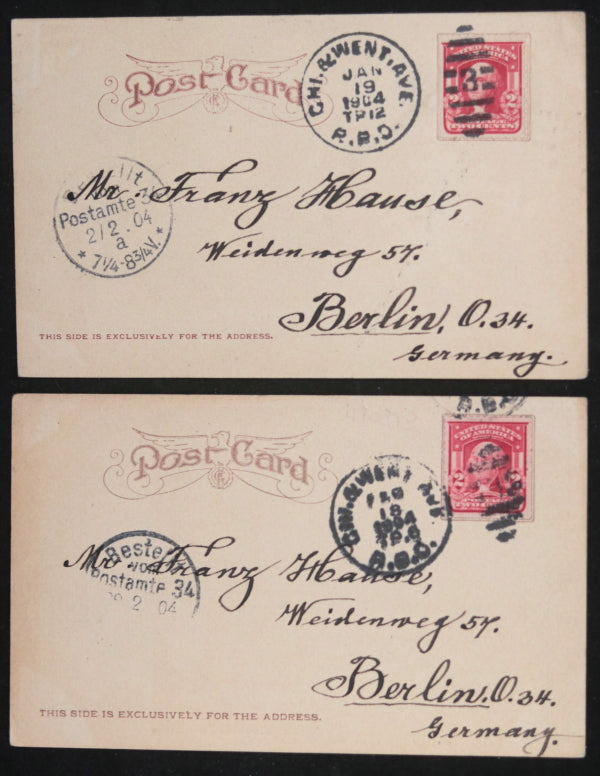 Post Card
CHI. & WENT. AVE.
JAN
19
1904
TR 12
R.P.O.
3
UNITED STATES
OF AMERICA
2 2
TWO CENTS
Postamte 34
2/2.04
a
* 7¼-8¾V. *
Mr. Franz Hause,
Weidenweg 57.
Berlin, O.34.
Germany.
THIS SIDE IS EXCLUSIVELY FOR THE ADDRESS.
R.P.O.
Post Card
CHI. & WENT AVE.
FEB
18
1904
R.P.O.
UNITED STATES
OF AMERICA
2
vom
Postamte 34
2 04
Mr. Franz Hause,
Weidenweg 57.
Berlin. O.34.
Germany.
THIS SIDE IS EXCLUSIVELY FOR THE ADDRESS.